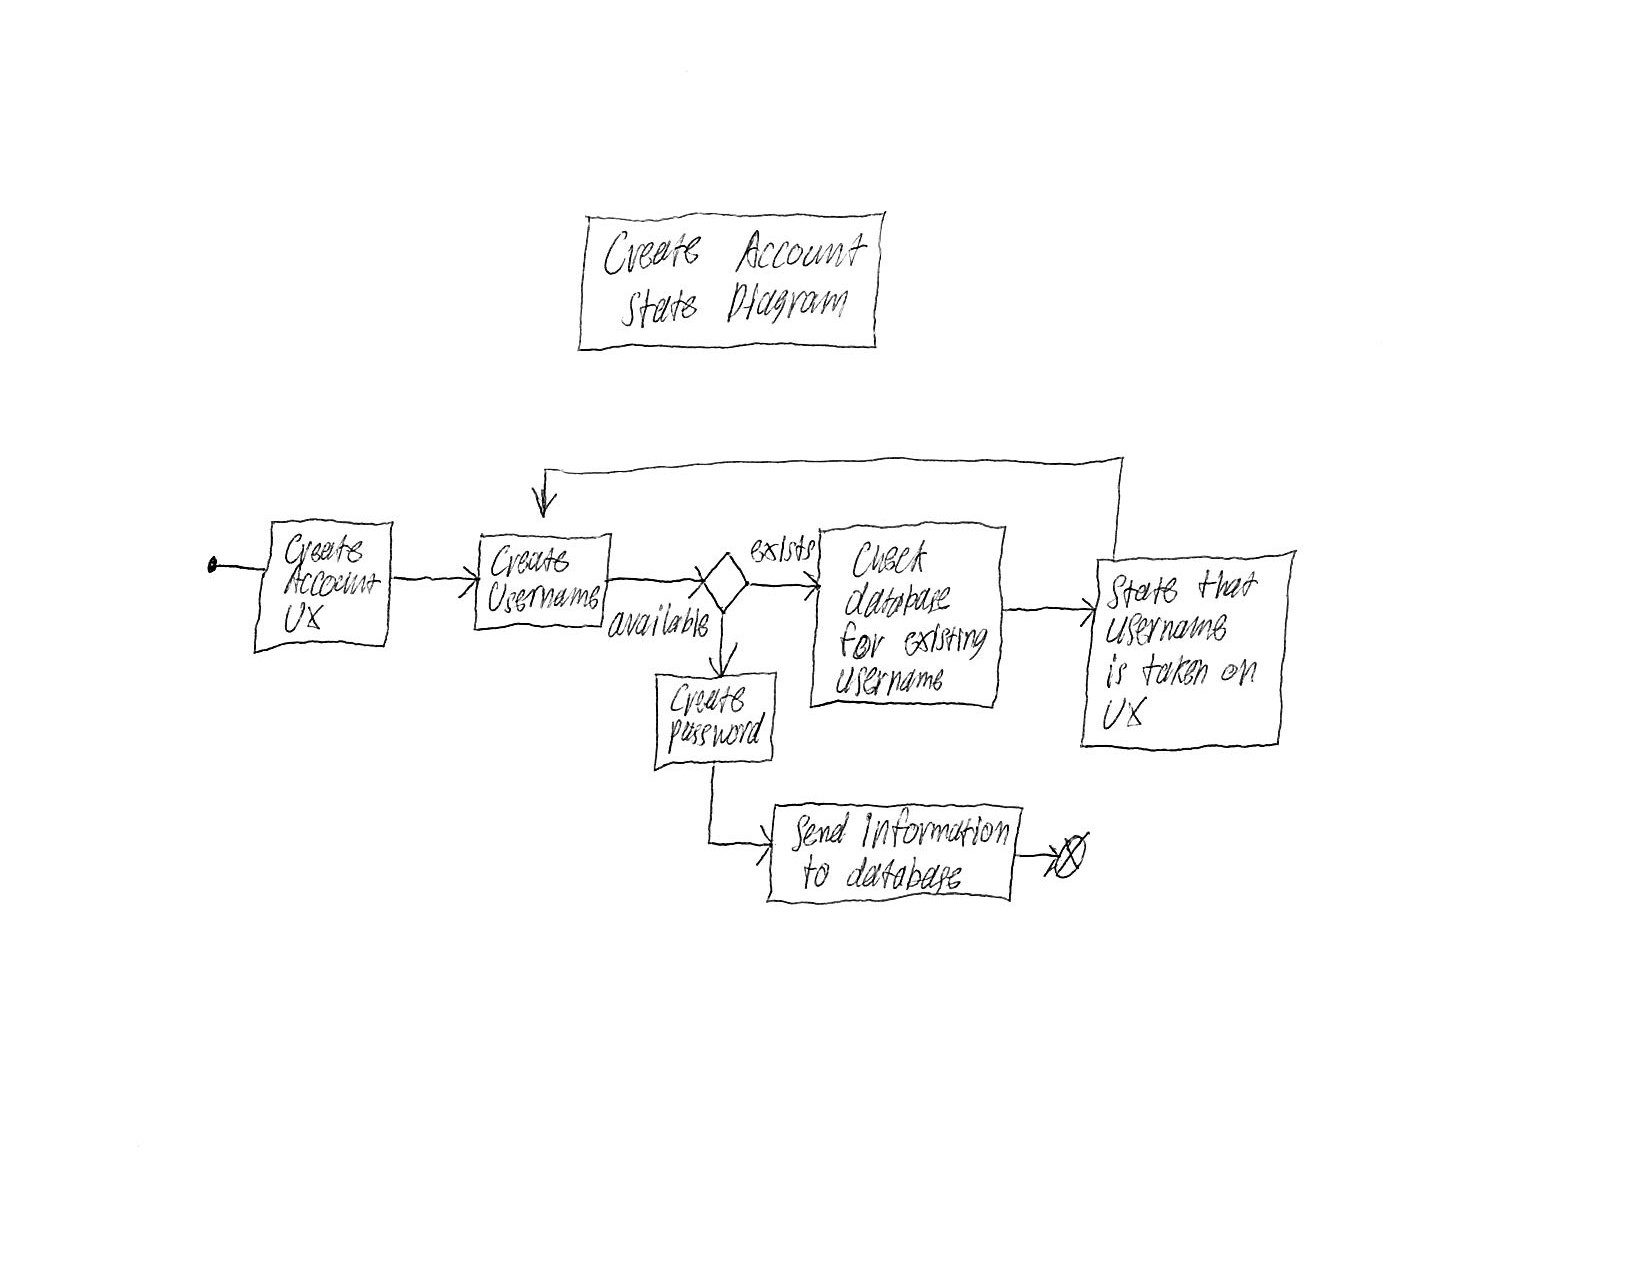 Create Account
State Diagram
Create
Account
UX
Create
Username
available
exists
Check
database
for existing
username
State that
username
is taken on
UX
Create
password
Send Information
to database